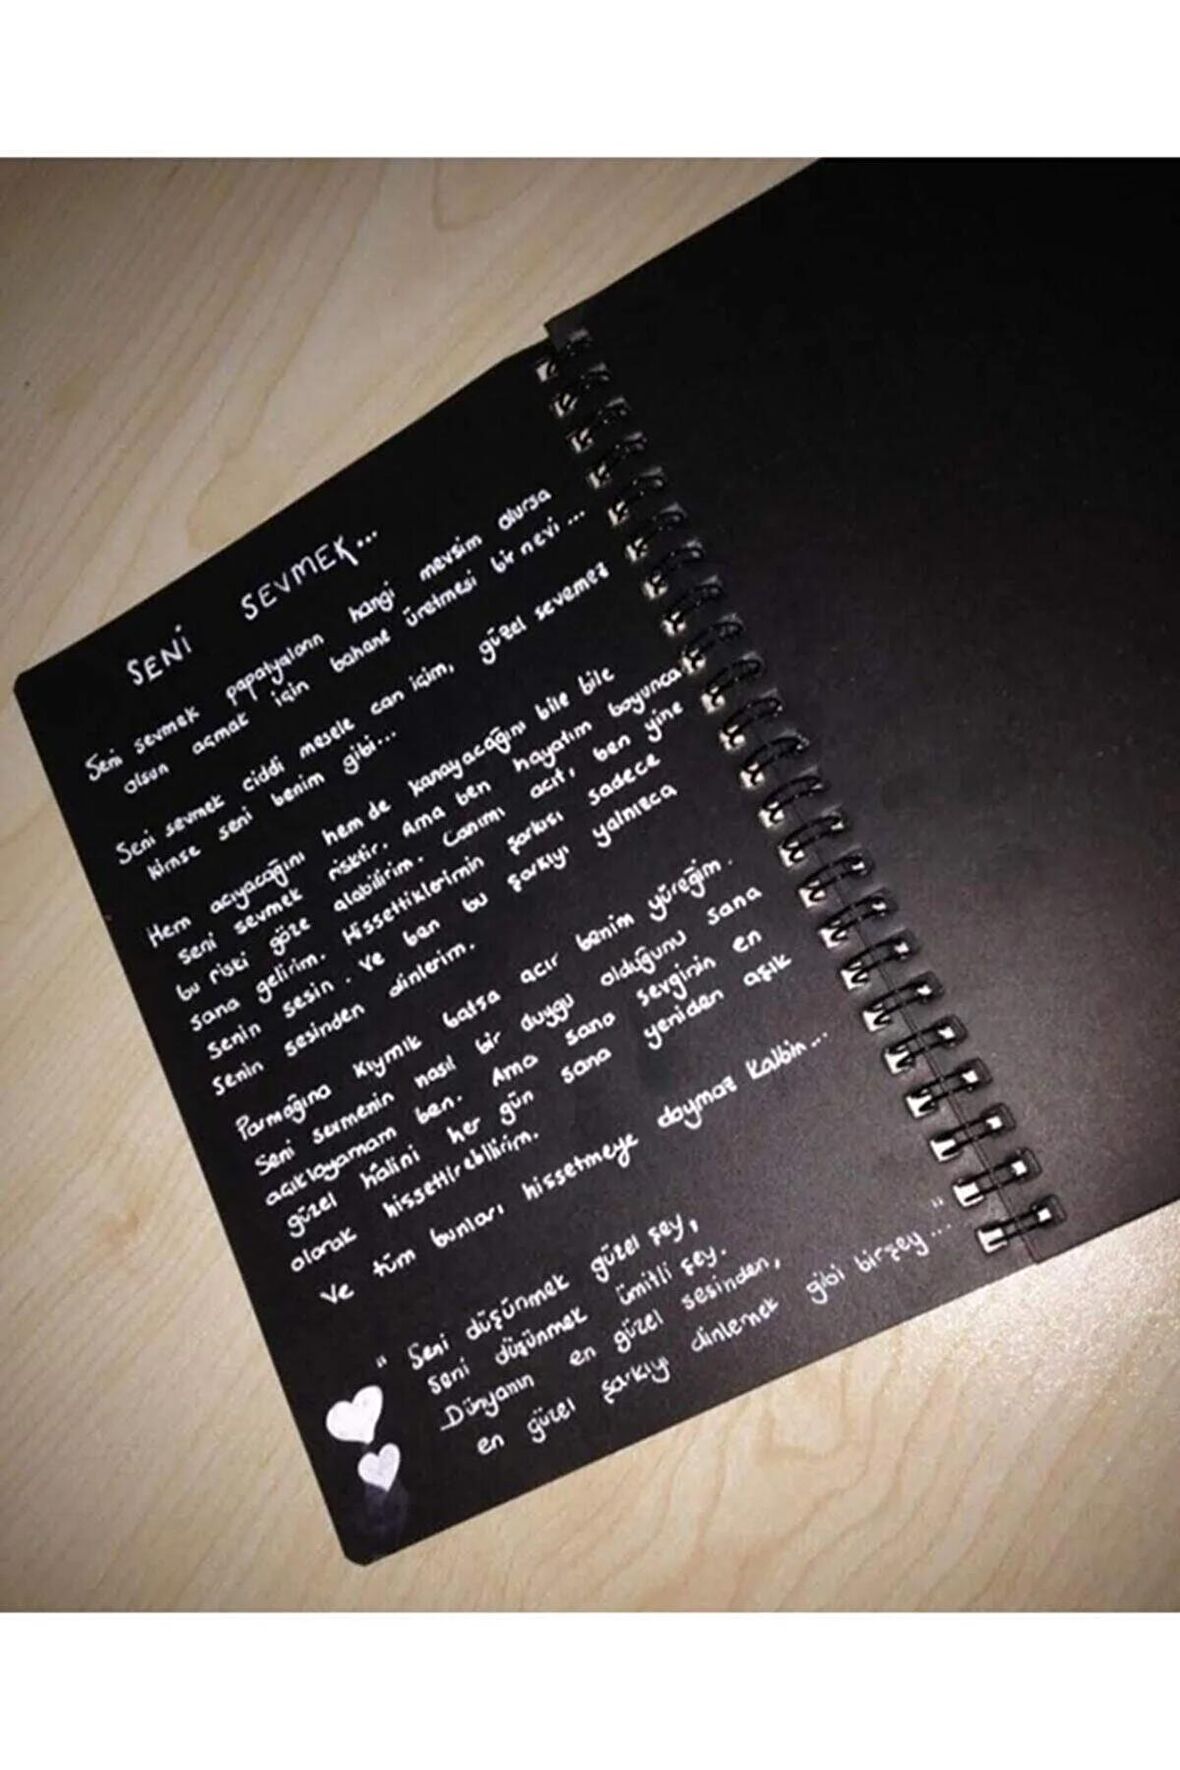 SENİ SEVMEK...
Seni sevmek papatyaların hangi mevsim olursa
olsun açmak için bahane üretmesi bir nevi...
Seni sevmek ciddi mesele can içim, güzel sevemez
kimse seni benim gibi...
Hem acıyacağını hem de kanayacağını bile bile
seni sevmek risktir. Ama ben hayatım boyunca
bu riski göze alabilirim. Canımı acıt, ben yine
sana gelirim. Hissettiklerimin şarkısı sadece
senin sesin. Ve ben bu şarkıyı yalnızca
senin sesinden dinlerim.
Parmağına kıymık batsa acır benim yüreğim.
Seni sevmenin nasıl bir duygu olduğunu sana
açıklayamam ben. Ama sana sevginin en
güzel hâlini her gün sana yeniden aşık
olarak hissettirebilirim.
Ve tüm bunları hissetmeye doymaz kalbin...
" Seni düşünmek güzel şey,
Seni düşünmek ümitli şey.
Dünyanın en güzel sesinden,
en güzel şarkıyı dinlemek gibi birşey..."